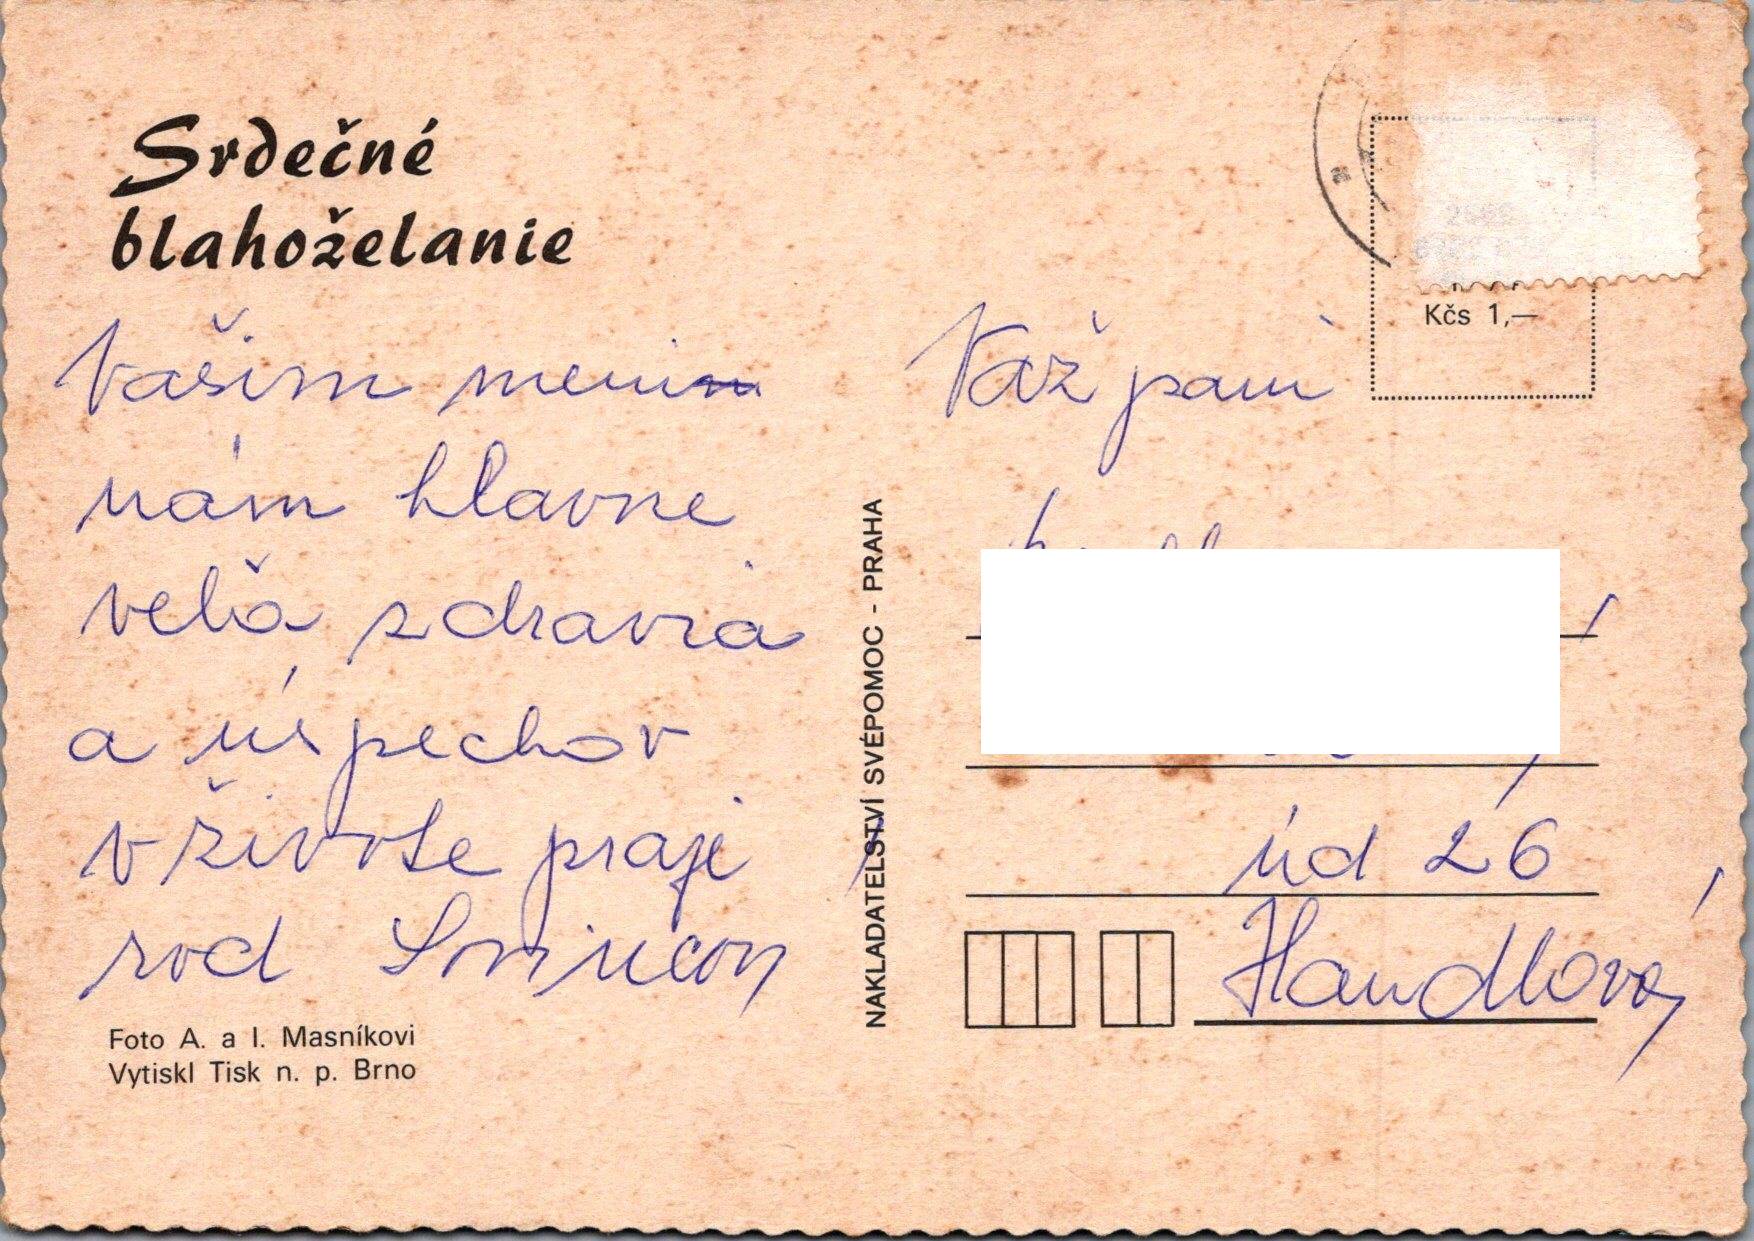 Srdečné
blahoželanie
Vašim menin
nám hlavne
veľa zdravia
a úspechov
v živote praje
rod
Foto A. a I. Masníkovi
Vytiskl Tisk n. p. Brno
NAKLADATELSTVÍ SVÉPOMOC - PRAHA
Kčs 1,—
Váž pani
úd 26
Handlová